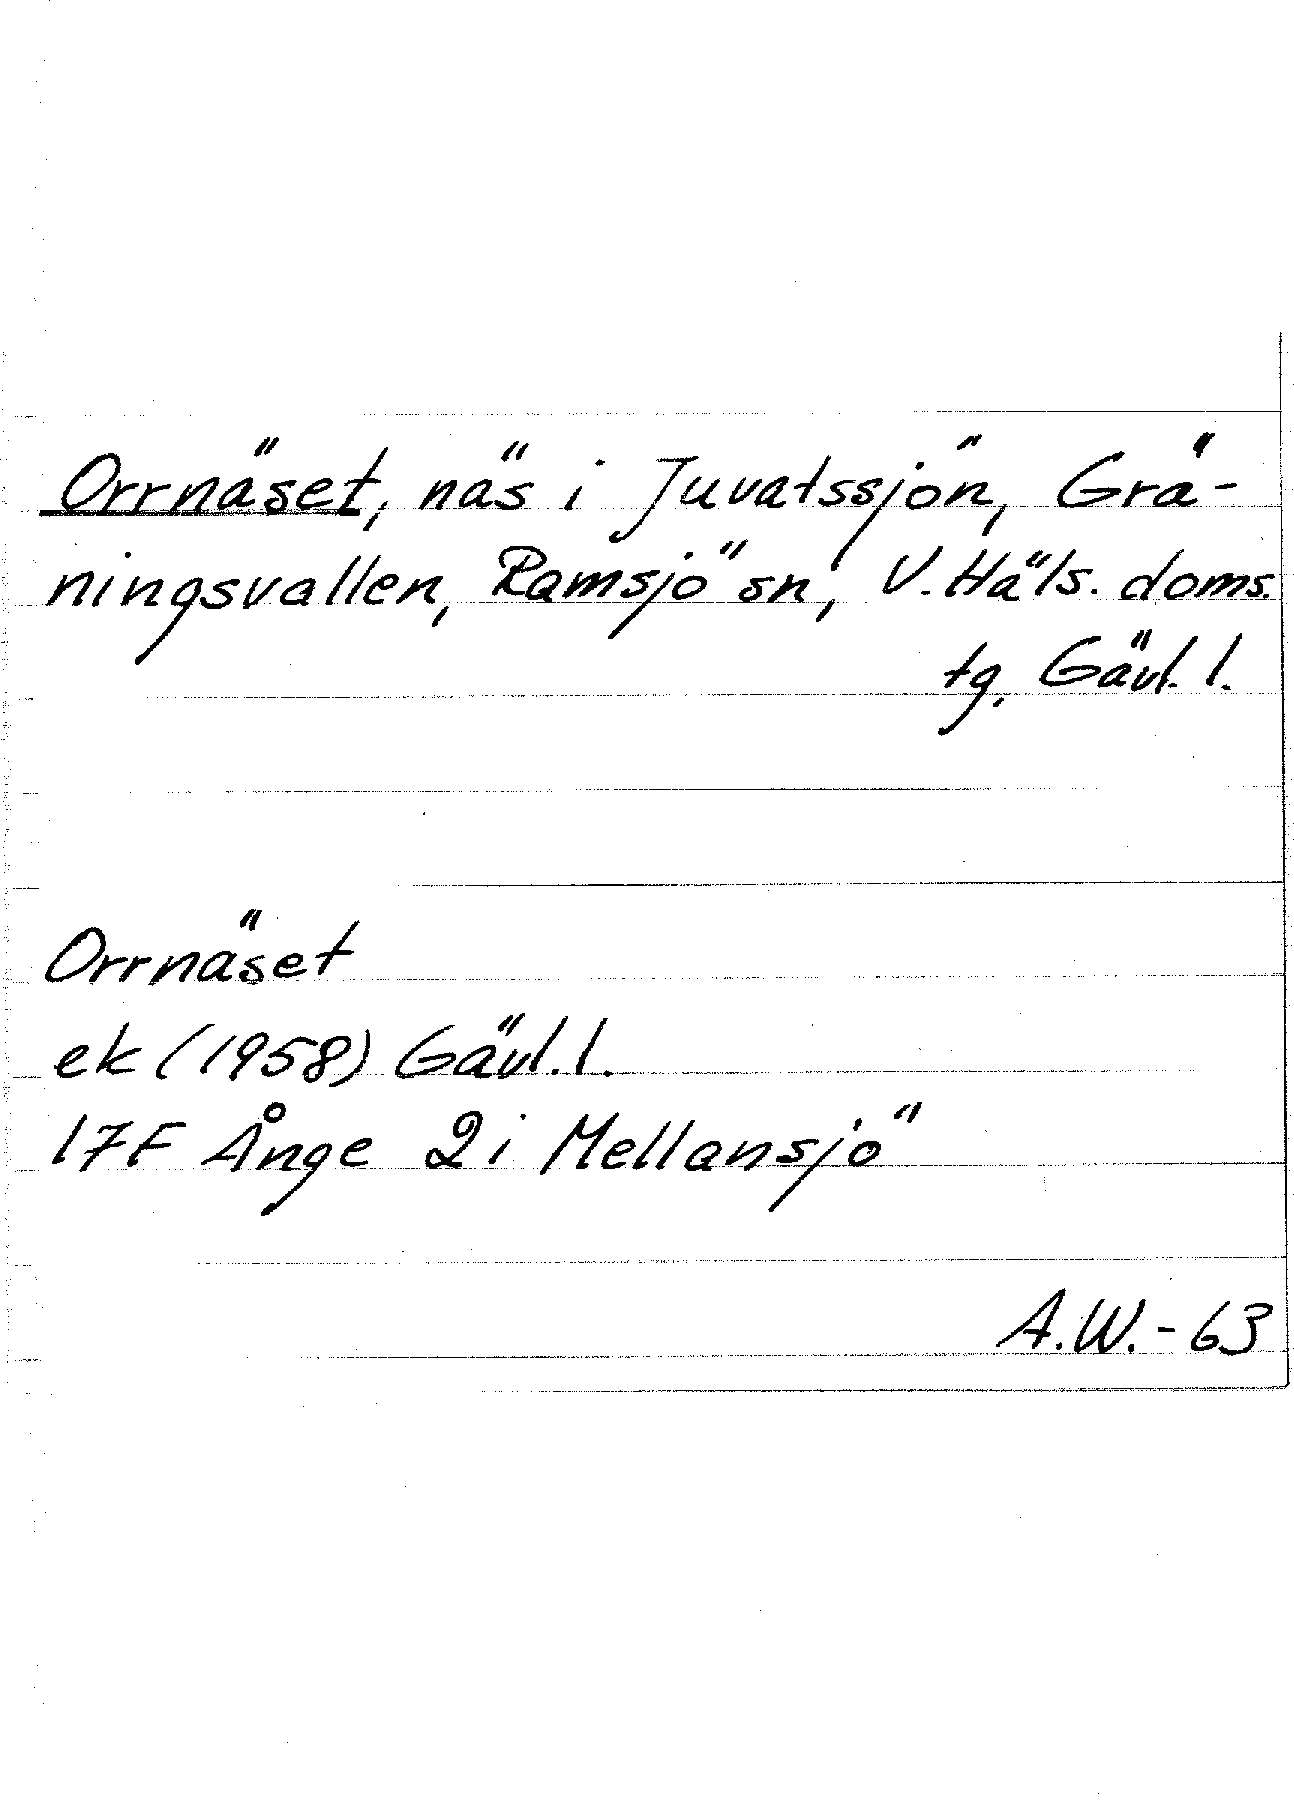 Orrnäset, näs i Juvatssjön, Grä-
ningsvallen, Ramsjö sn, V. Häls. doms.
tg, Gävl. l.
Orrnäset
ek (1958) Gävl. l.
17F Ånge 2i Mellansjö
A.W.-63